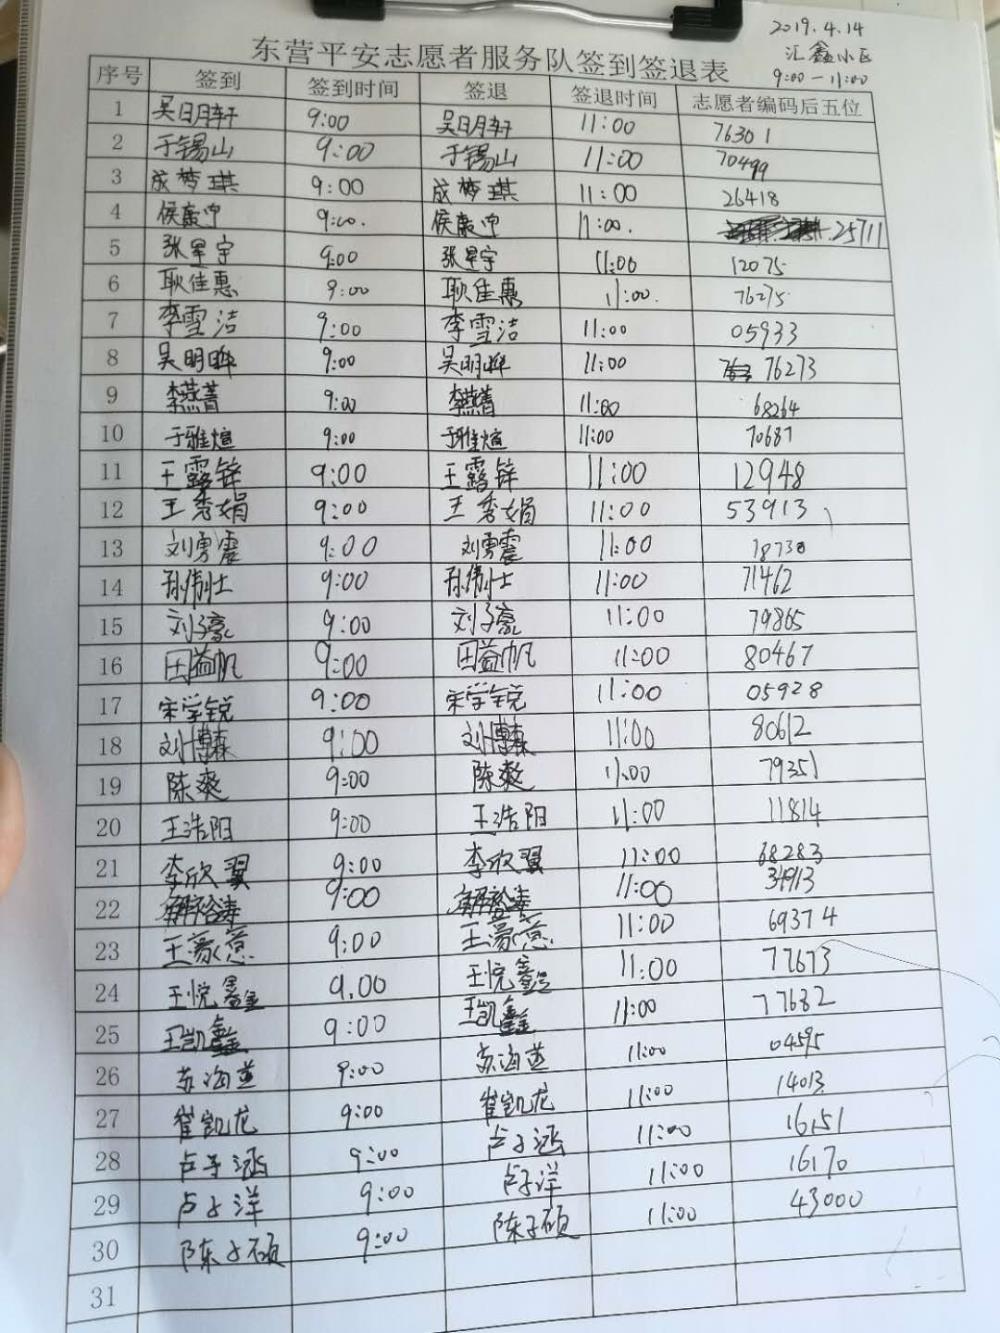 2019.4.14
汇鑫小区
9:00-11:00
东营平安志愿者服务队签到签退表
序号 签到 签到时间 签退 签退时间 志愿者编码后五位
1 吴日月轩 9:00 吴日月轩 11:00 76301
2 于锡山 9:00 于锡山 11:00 70499
3 成梦琪 9:00 成梦琪 11:00 26418
4 侯康中 9:00. 侯康中 11:00. 25711
5 张军宇 9:00 张军宇 11:00 12075
6 耿佳惠 9:00 耿佳惠 11:00. 76275
7 李雪洁 9:00 李雪洁 11:00 05933
8 吴明晔 9:00 吴明晔 11:00 76273
9 李燕菁 9:00 李燕菁 11:00 68264
10 于雅煊 9:00 于雅煊 11:00 70687
11 王露锌 9:00 王露锌 11:00 12948
12 王秀娟 9:00 王秀娟 11:00 53913
13 刘勇震 9:00 刘勇震 11:00 18730
14 孙伟壮 9:00 孙伟壮 11:00 71462
15 刘子豪 9:00 刘子豪 11:00 79865
16 田益帆 9:00 田益帆 11:00 80467
17 宋学锐 9:00 宋学锐 11:00 05928
18 刘博森 9:00 刘博森 11:00 80612
19 陈爽 9:00 陈爽 11:00 79351
20 王浩阳 9:00 王浩阳 11:00 11814
21 李欣翼 9:00 李欣翼 11:00 68283
22 9:00 11:00 34913
23 王豪意 9:00 王豪意 11:00 69374
24 王悦鑫 9.00 王悦鑫 11:00 77673
25 王凯鑫 9:00 王凯鑫 11:00 77682
26 苏海燕 9:00 苏海燕 11:00 04595
27 崔凯龙 9:00 崔凯龙 11:00 14013
28 卢子涵 9:00 卢子涵 11:00 16151
29 卢子洋 9:00 卢子洋 11:00 16170
30 陈子硕 9:00 陈子硕 11:00 43000
31